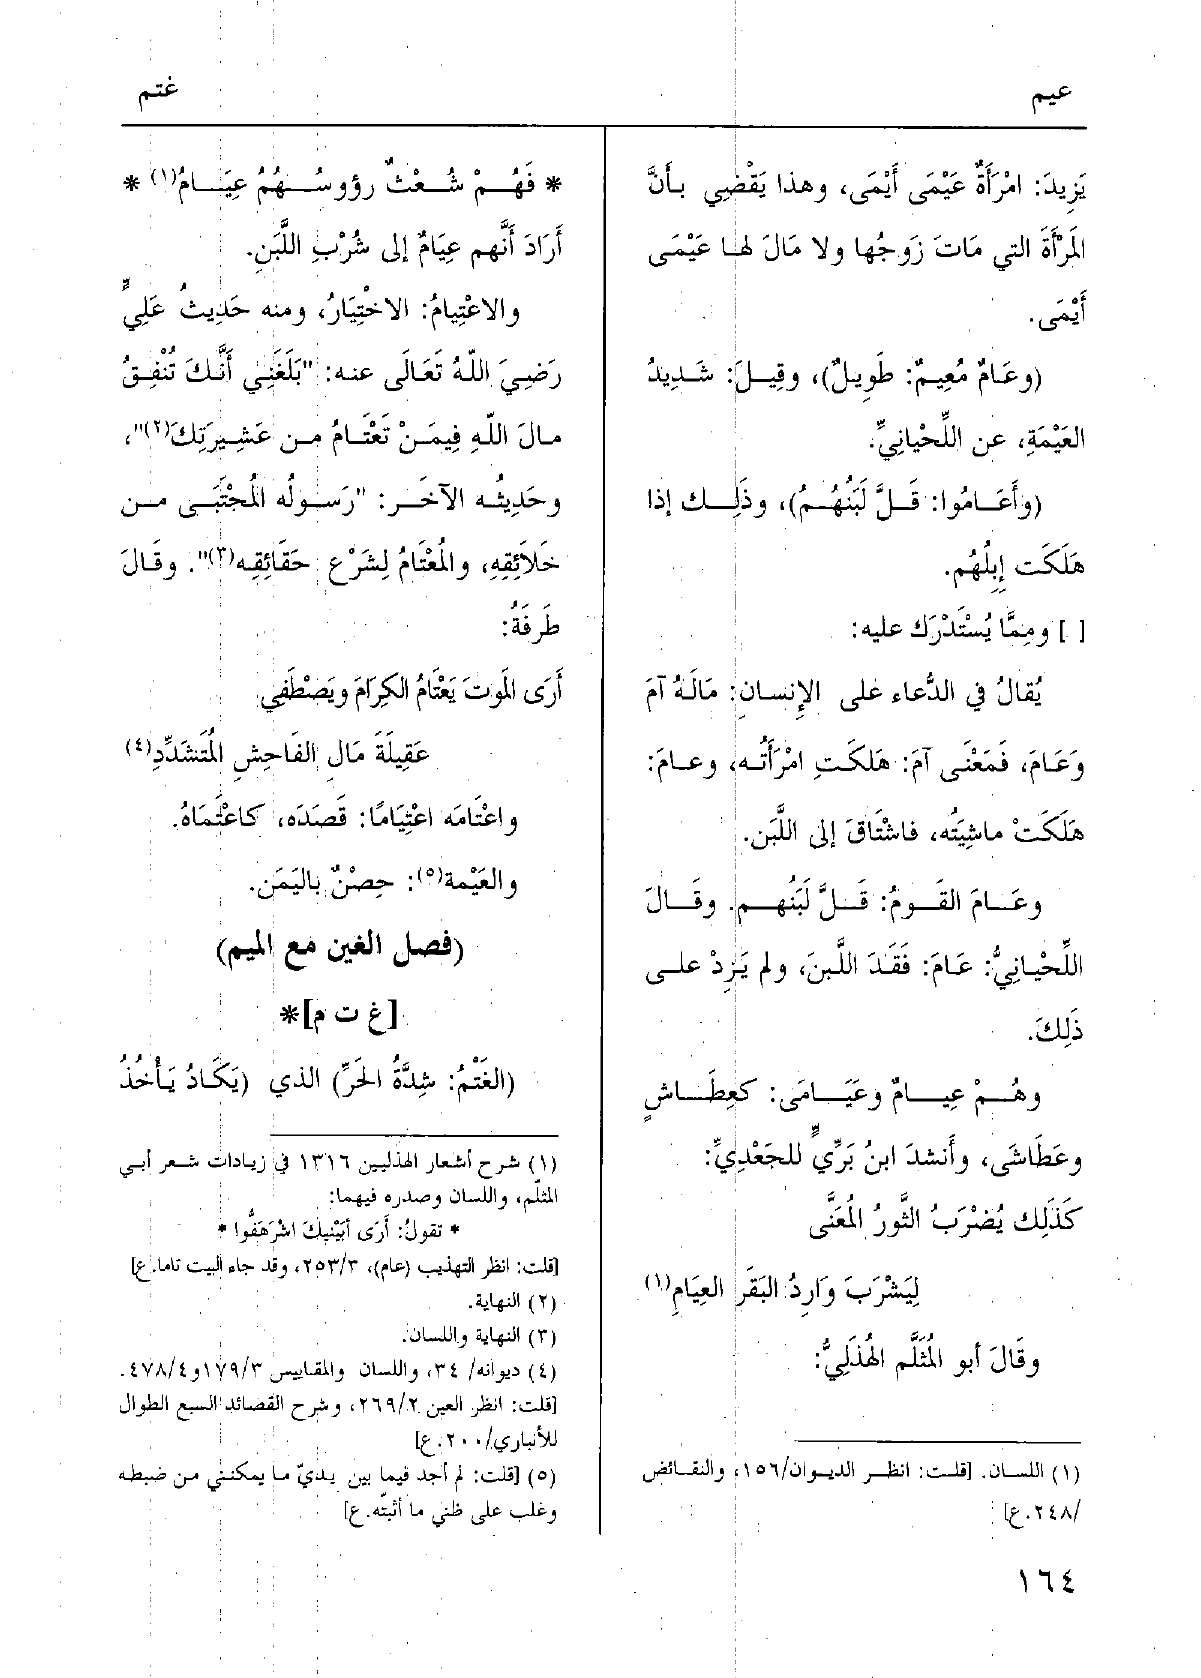 عيم
غتم
يَزِيدَ: امْرَأَةٌ عَيْمَى أَيْمَى، وهذا يَقْضِي بأَنَّ
المَرْأَةَ التي مَاتَ زَوجُها ولا مَالَ لها عَيْمَى
أَيْمَى.
(وعَامٌ مُعِيمٌ: طَوِيلٌ)، وقِيلَ: شَدِيدُ
العَيْمَةِ، عن اللِّحْيانِيِّ.
(وأَعَامُوا: قَلَّ لَبَنُهُمُ)، وذَلِك إذا
هَلَكَت إِبِلُهُم.
[ ] ومِمَّا يُسْتَدْرَك عليه:
يُقالُ في الدُّعاء على الإنسانِ: مَالَهُ آمَ
وَعَامَ، فَمَعْنَى آمَ: هَلَكَتِ امْرَأَتُه، وعامَ:
هَلَكَتْ ماشِيَتُه، فاشْتَاقَ إلى اللَّبَن.
وعَامَ القَومُ: قَلَّ لَبَنُهم. وقَالَ
اللِّحْيانِيُّ: عَامَ: فَقَدَ اللَّبنَ، ولم يَزِدْ على
ذَلِكَ.
وهُمْ عِيامٌ وعَيَامَى: كعِطَاشٍ
وعَطَاشَى، وأَنشدَ ابنُ بَرِّيٍّ للجَعْدِيِّ:
كَذَلِك يُضْرَبُ الثَّورُ المُعَنَّى
لِيَشْرَبَ وَارِدُ البَقَر العِيَامِ(١)
وقَالَ أبو المُثَلَّم الهُذَلِيُّ:
(١) اللسان. [قلت: انظر الديوان/١٥٦، والنقائض
/٢٤٨.ع]
* فَهُمْ شُعْثٌ رؤوسُهُمُ عِيَامُ(١) *
أَرَادَ أَنَّهم عِيَامٌ إلى شُرْبِ اللَّبَنِ.
والاعْتِيامُ: الاخْتِيَارُ، ومنه حَدِيثُ عَلِيٍّ
رَضِيَ اللهُ تَعَالَى عنه: "بَلَغَنِي أَنَّكَ تُنْفِقُ
مالَ اللهِ فِيمَنْ تَعْتَامُ من عَشِيرَتِكَ(٢)"،
وحَدِيثُه الآخَر: "رَسولُه المُجْتَبَى من
خَلاَئِقِهِ، والمُعْتَامُ لِشَرْعِ حَقَائِقِه(٣)". وقَالَ
طَرفَةُ:
أَرَى المَوتَ يَعْتَامُ الكِرَامَ ويَصْطَفِي
عَقِيلَةَ مَالِ الفَاحِشِ المُتَشَدِّدِ(٤)
واعْتَامَه اعْتِيَامًا: قَصَدَه، كاعْتَمَاهُ.
والعَيْمة(٥): حِصْنٌ باليَمَن.
(فصل الغين مع الميم)
[غ ت م]*
(الغَتْمُ: شِدَّةُ الحَرِّ) الذي (يَكَادُ يَأْخُذُ
(١) شرح أشعار الهذليين ١٣١٦ في زيادات شعر أبي
المثلّم، واللسان وصدره فيهما:
* تقولُ: أَرَى أُبَيْنِيكَ اشْرَهَفُّوا *
[قلت: انظر التهذيب (عام)، ٢٥٣/٣، وقد جاء البيت تاما.ع]
(٢) النهاية.
(٣) النهاية واللسان.
(٤) ديوانه/ ٣٤، واللسان والمقاييس ١٧٩/٣و٤٧٨/٤.
[قلت: انظر العين ٢٦٩/٢، وشرح القصائد السبع الطوال
للأنباري/٢٠٠.ع]
(٥) [قلت: لم أجد فيما بين يديّ ما يمكنني من ضبطه
وغلب على ظني ما أثبتّه.ع]
١٦٤